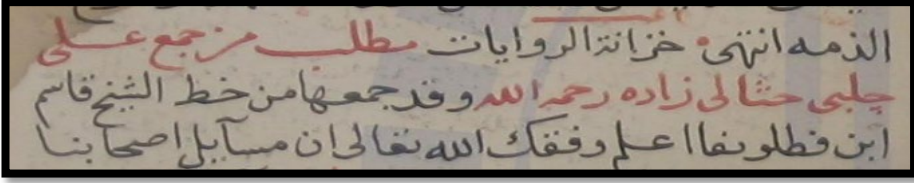 الذمه انتهى خزانة الروايات مطلب من جمع على
چلبى حنالى زاده رحمه الله وقد جمعها من خط الشيخ قاسم
ابن قطلوبغا اعلم وفقك الله تعالى ان مسآيل اصحابنا